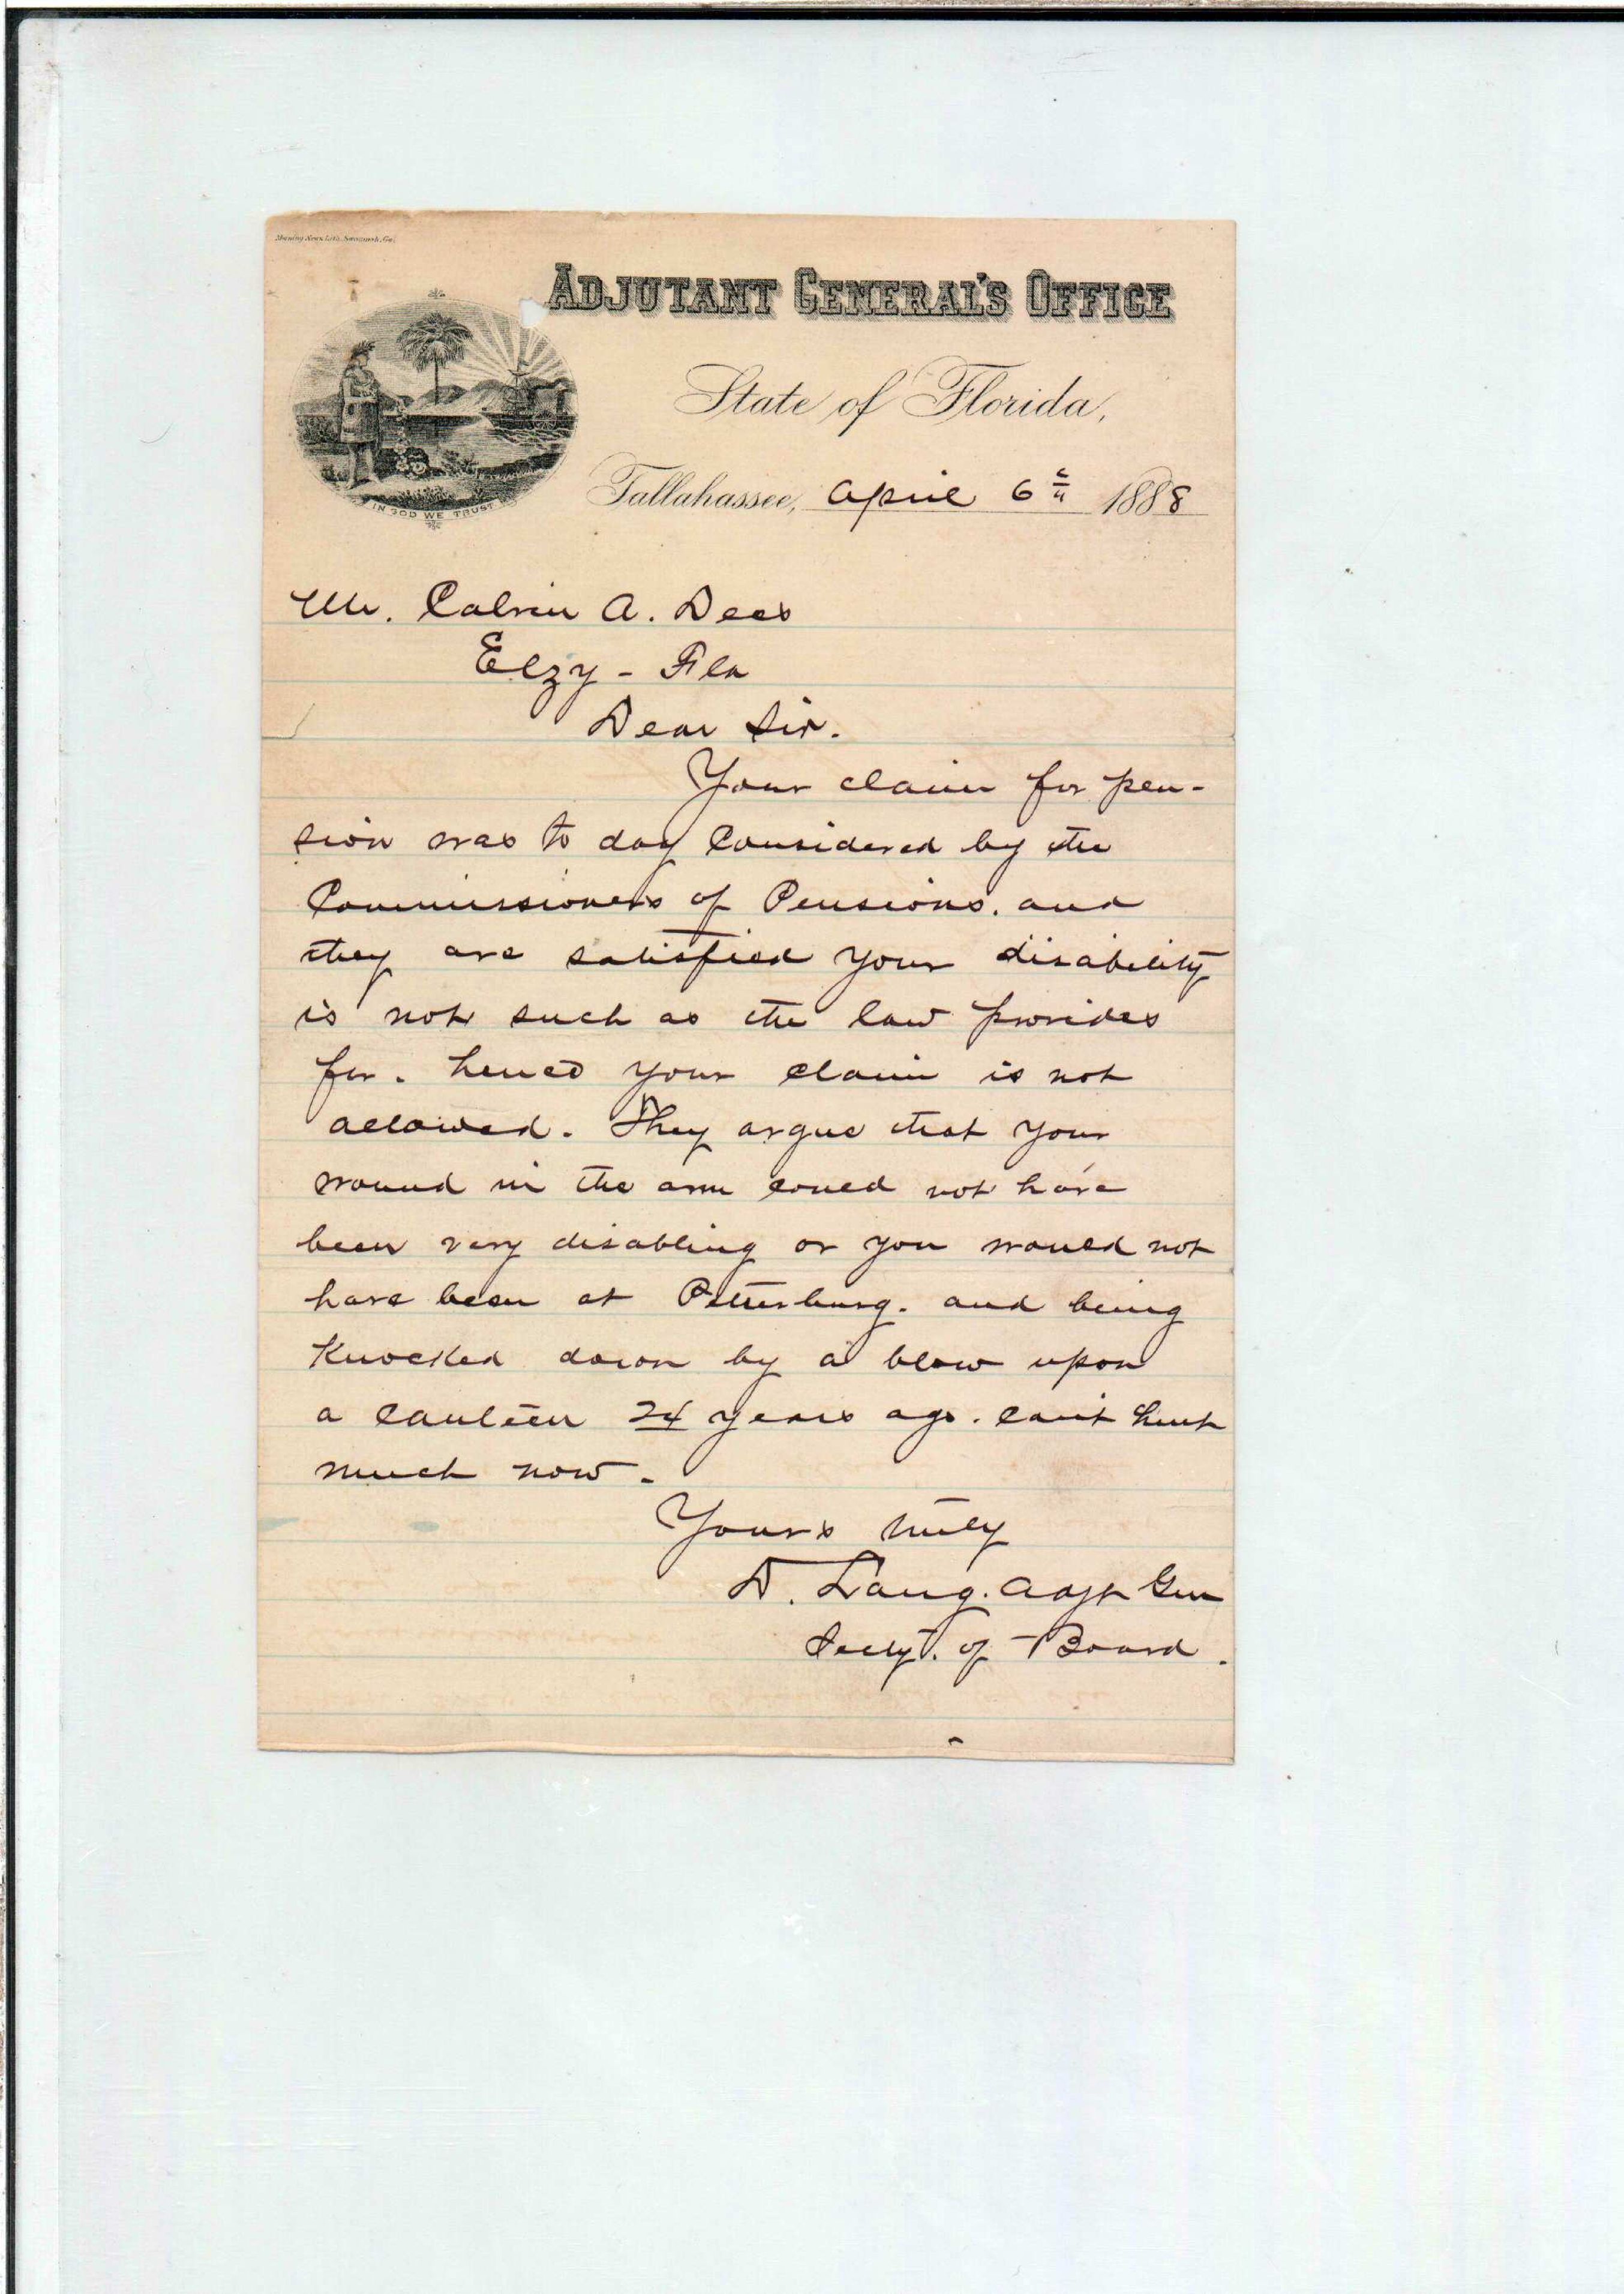 Morning News Lith. Savannah, Ga.
ADJUTANT GENERAL'S OFFICE
State of Florida,
IN GOD WE TRUST
Tallahassee, April 6th 1888
Mr. Calvin A. Dees
Elzy - Fla
Dear Sir.
Your claim for pen-
sion was to day Considered by the
Commissioners of Pensions. and
they are satisfied your disability
is not such as the law provides
for. hence your claim is not
allowed. They argue that your
wound in the arm could not have
been very disabling or you would not
have been at Petersburg. and being
Knocked down by a blow upon
a canteen 24 years ago. can't hurt
much now.
Yours truly
D. Lang. Adjt Gen
Secty. of Board.